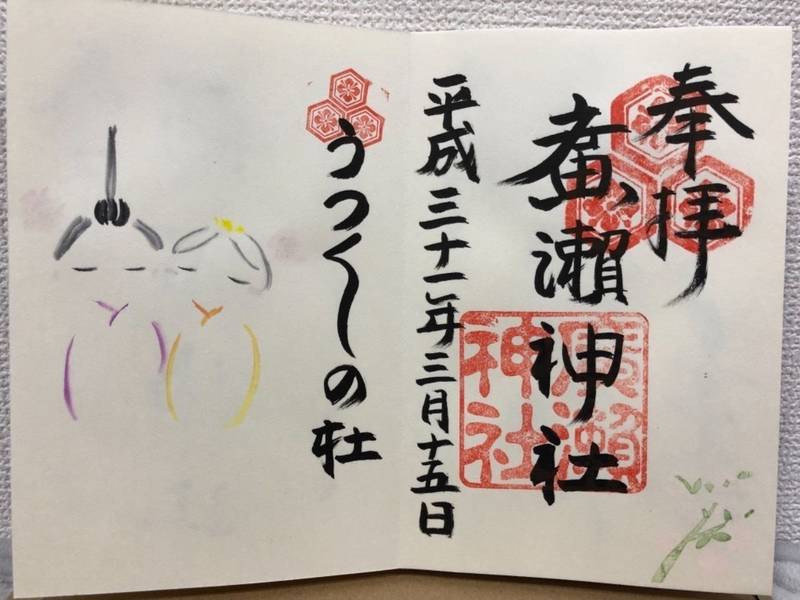 奉拝
廣瀬神社
廣瀬神社
平成三十一年三月十五日
うつくしの杜